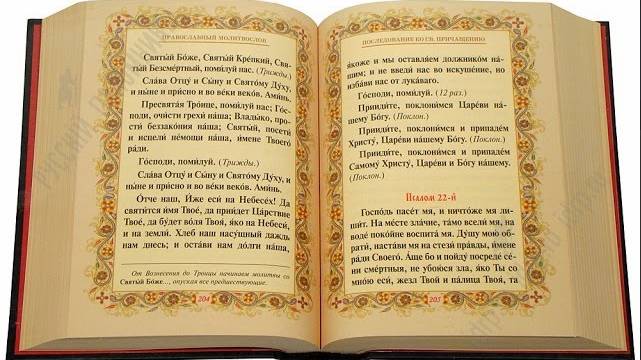 ПРАВОСЛАВНЫЙ МОЛИТВОСЛОВ
Святы́й Бо́же, Святы́й Кре́пкий, Свя-
ты́й Безсме́ртный, поми́луй нас. (Трижды.)
Сла́ва Отцу́ и Сы́ну и Свято́му Ду́ху,
и ны́не и при́сно и во ве́ки веко́в. Ами́нь.
Пресвята́я Тро́ице, поми́луй нас; Го́с-
поди, очи́сти грехи́ на́ша; Влады́ко, про-
сти́ беззако́ния на́ша; Святы́й, посети́
и исцели́ не́мощи на́ша, и́мене Твоего́
ра́ди.
Го́споди, поми́луй. (Трижды.)
Сла́ва Отцу́ и Сы́ну и Свято́му Ду́ху, и
ны́не и при́сно и во ве́ки веко́в. Ами́нь.
О́тче наш, И́же еси́ на Небесе́х! Да
святи́тся и́мя Твое́, да прии́дет Ца́рствие
Твое́, да бу́дет во́ля Твоя́, я́ко на Небеси́,
и на земли́. Хлеб наш насу́щный даждь
нам днесь; и оста́ви нам до́лги на́ша,
От Вознесения до Троицы начинаем молитвы со
Святы́й Бо́же..., опуская все предшествующие.
204
ПОСЛЕДОВАНИЕ КО СВ. ПРИЧАЩЕНИЮ
я́коже и мы оставля́ем должнико́м на́-
шим; и не введи́ нас во искуше́ние, но
изба́ви нас от лука́ваго.
Го́споди, поми́луй. (12 раз.)
Прииди́те, поклони́мся Царе́ви на́-
шему Бо́гу. (Поклон.)
Прииди́те, поклони́мся и припаде́м
Христу́, Царе́ви на́шему Бо́гу. (Поклон.)
Прииди́те, поклони́мся и припаде́м
Самому́ Христу́, Царе́ви и Бо́гу на́шему.
(Поклон.)
Псалом 22-й
Госпо́дь пасе́т мя, и ничто́же мя ли-
ши́т. На ме́сте зла́чне, та́мо всели́ мя, на
воде́ поко́йне воспита́ мя. Ду́шу мою́ об-
рати́, наста́ви мя на стези́ пра́вды, и́мене
ра́ди Своего́. А́ще бо и пойду́ посреде́ се́-
ни сме́ртныя, не убою́ся зла, я́ко Ты со
мно́ю еси́, жезл Твой и па́лица Твоя́, та
205